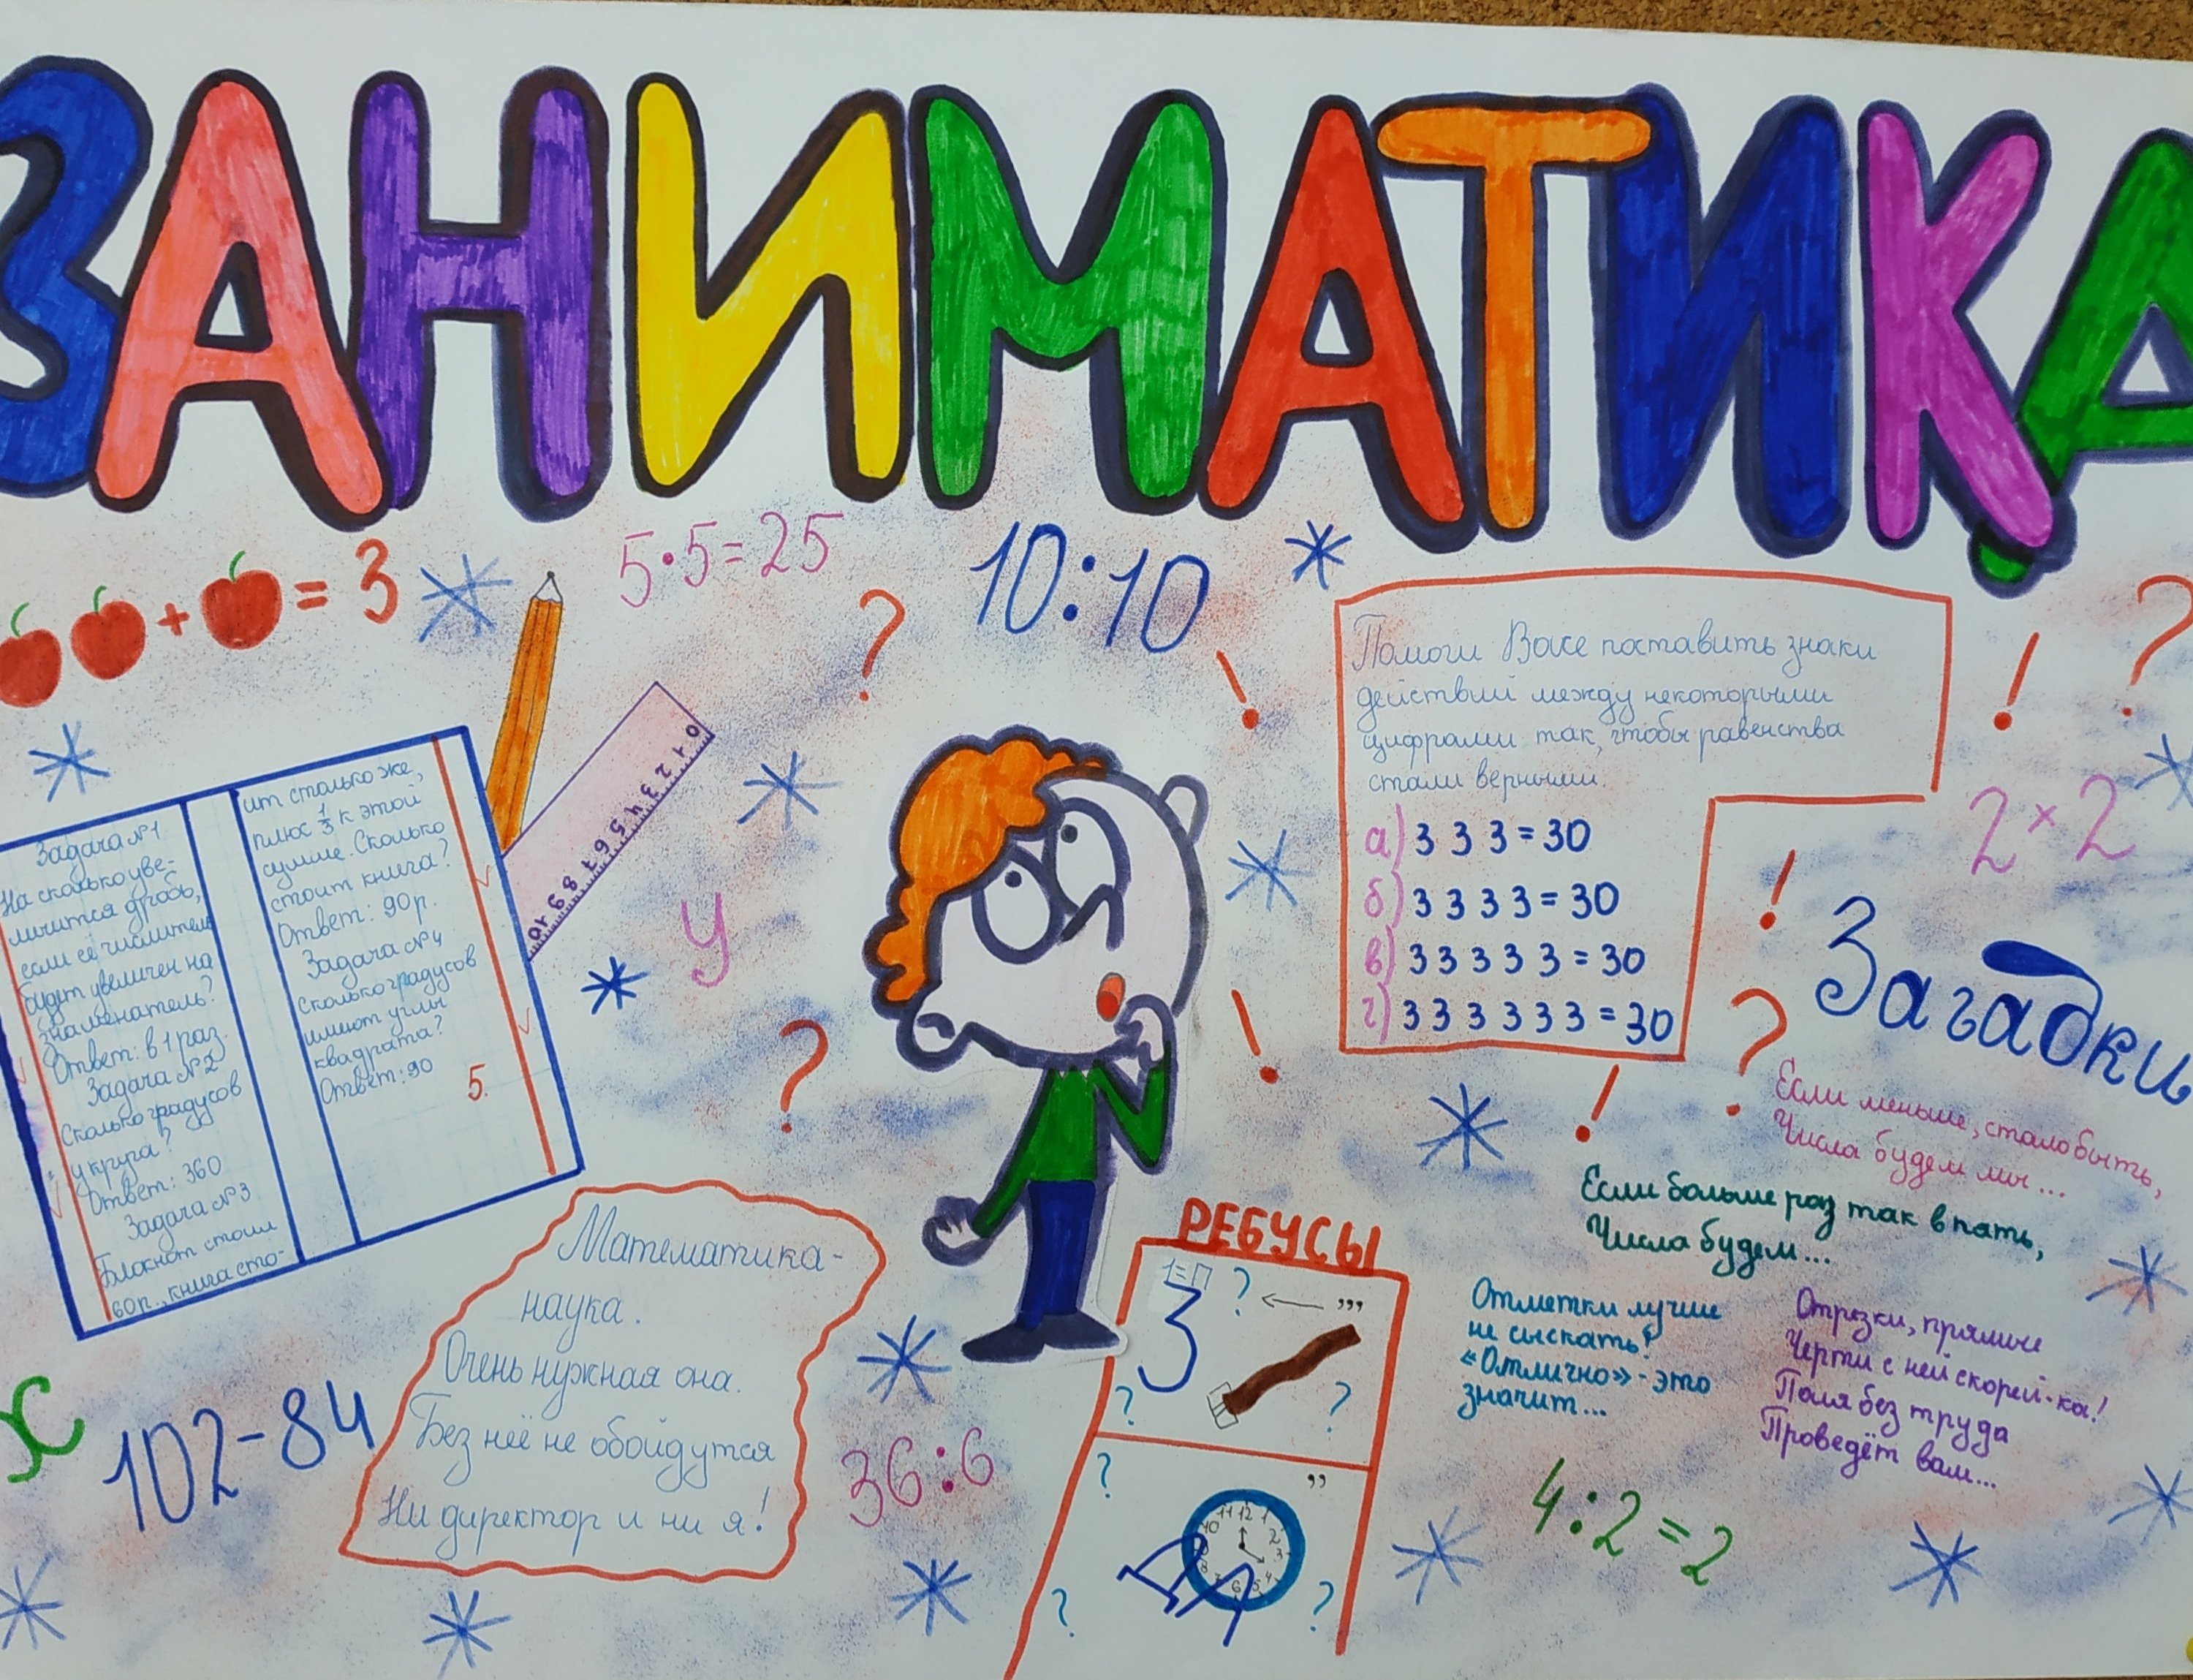 ЗАНИМАТИКА
= 3
+
5·5=25
10:10
?
!
Помоги Васе поставить знаки
действий между некоторыми
цифрами так, чтобы равенства
стали верными.
а) 3 3 3 = 30
б) 3 3 3 3 = 30
в) 3 3 3 3 3 = 30
г) 3 3 3 3 3 3 = 30
!
?
2×2
0 1 2 3 4 5 6 7 8 9 10
Задача №1
На сколько уве-
личится дробь,
если её числитель
будет увеличен на
знаменатель?
Ответ: в 1 раз.
Задача №2
Сколько градусов
у круга?
Ответ: 360
Задача №3
Блокнот стоил
60 р., книга сто-
ит столько же,
плюс 1/3 к этой
сумме. Сколько
стоит книга?
Ответ: 90 р.
Задача №4
Сколько градусов
имеют углы
квадрата?
Ответ: 90
5.
у
?
!
!
?
!
Загадки
Если меньше, стало быть,
Числа будем мы...
Если больше раз так в пять,
Числа будем...
Отметки лучше
не сыскать!
«Отлично» - это
значит...
Отрезки, прямые
Черти с ней скорей-ка!
Поля без труда
Проведёт вам...
4:2=2
Математика-
наука.
Очень нужная она.
Без неё не обойдутся
Ни директор и ни я!
х
102-84
36:6
РЕБУСЫ
1=П
? ← ,,,
3
? ?
? ,,
11 12 1
10 2
3
8 4
7 6 5
? ?